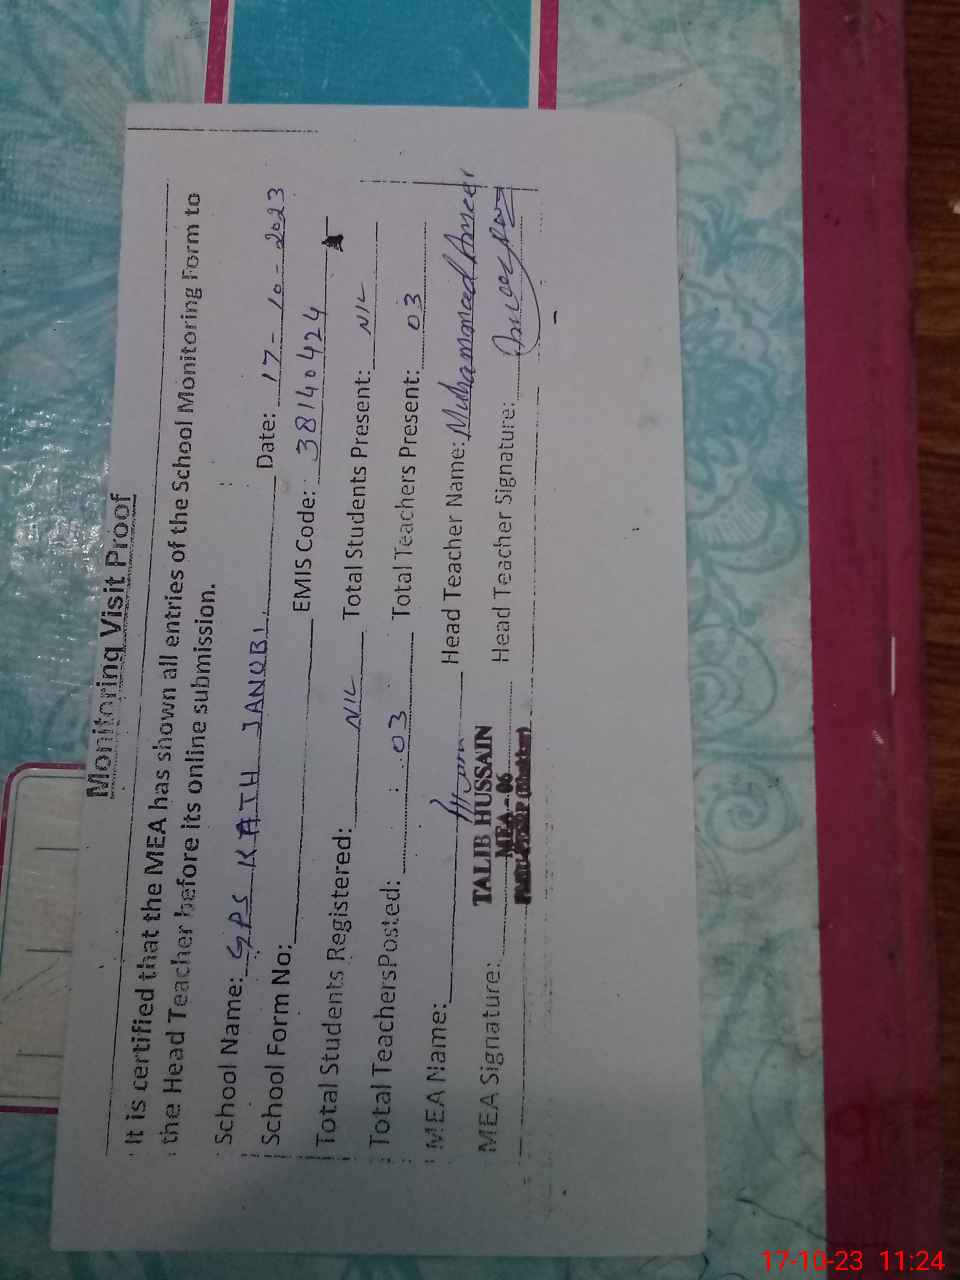 Monitoring Visit Proof
It is certified that the MEA has shown all entries of the School Monitoring Form to
the Head Teacher before its online submission.
School Name: GPS KATH JANUBI Date: 17-10-2023
School Form No: EMIS Code: 38140424
Total Students Registered: NIL Total Students Present: NIL
Total TeachersPosted: 03 Total Teachers Present: 03
MEA Name: Head Teacher Name: Muhammad Ameer
MEA Signature: Head Teacher Signature:
TALIB HUSSAIN
MEA-06
17-10-23 11:24